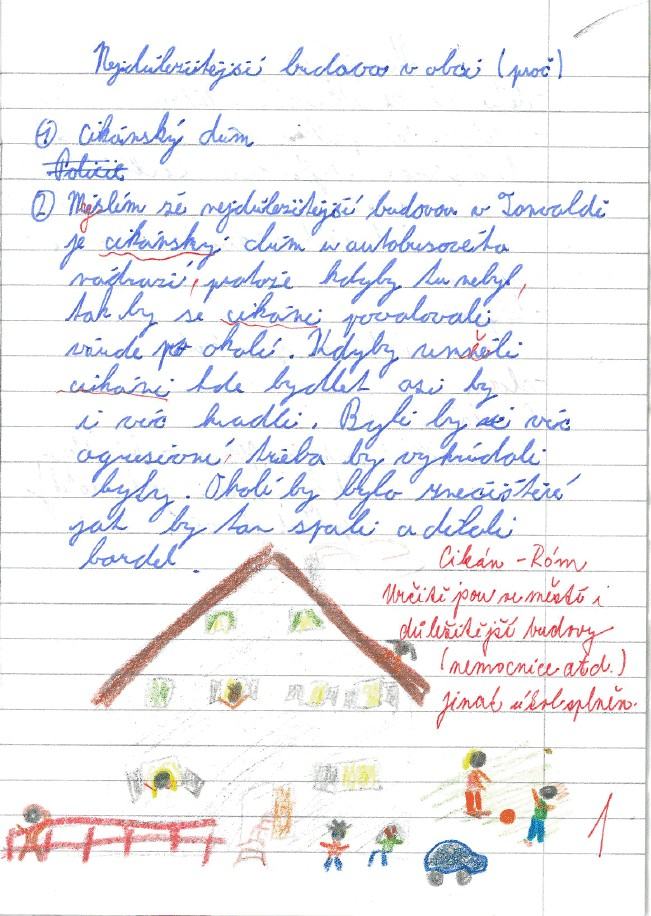 Nejdůležitejsí budova v obci (proč)
① cikánský dům
Policie
② Myslím sé nejdůležitéjší budovou v Tanvaldě
je cikánsky dům u autobusového
nádrazí, protoze kdyby tu nebyl,
tak by se cikáni povalovali
všude po okolí. Kdyby neměli
cikáni kde bydlet asi by
i víc kradli. Byli by víc
agresivní, třeba by vykrádali
byty. Okolí by bylo znečištěné
jak by tam spali a dělali
bordel.
Cikán - Róm
Určitě jsou ve městě i
důležitější budovy
(nemocnice atd.)
jinak úkol splněn.
1